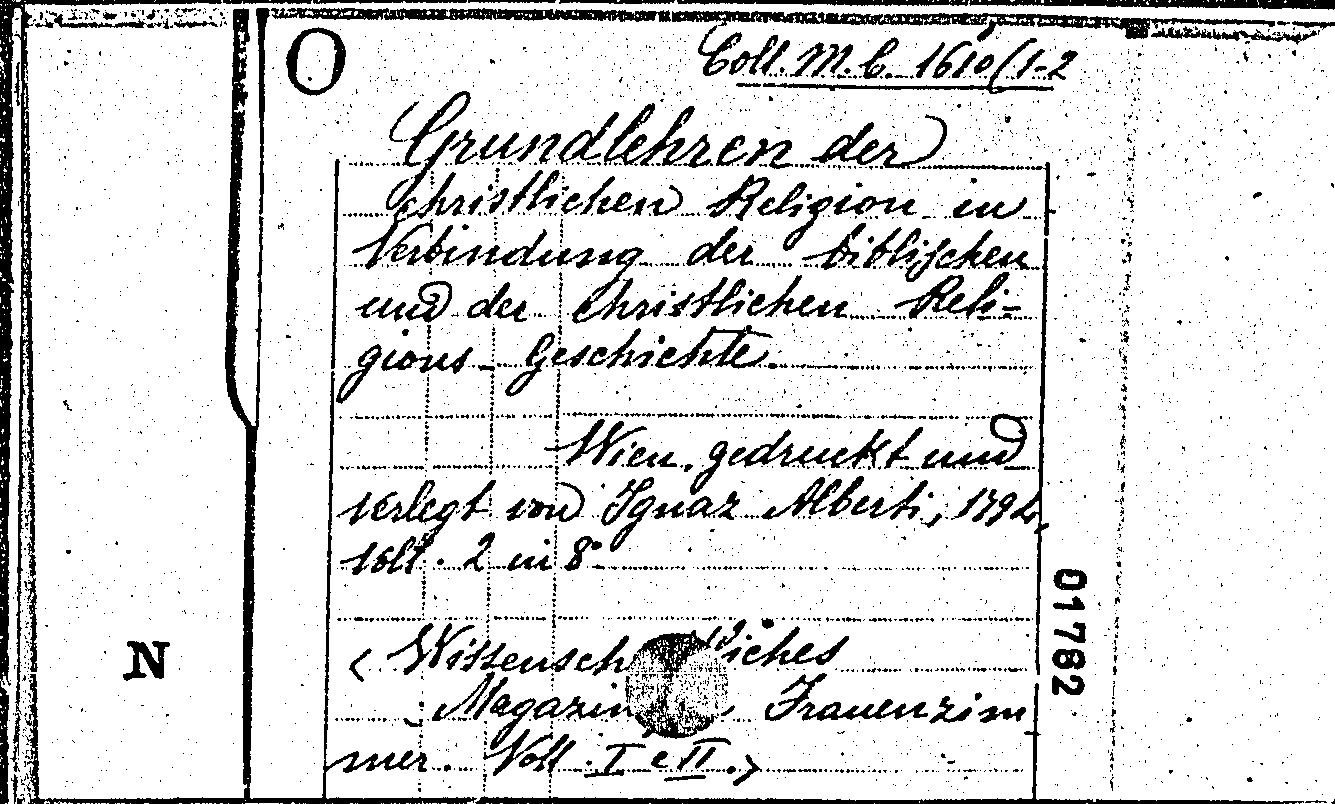 O
Coll. M. C. 1610/1-2
Grundlehren der
christlichen Religion in
Verbindung der biblischen
und der christlichen Reli-
gions-Geschichte.
Wien, gedruckt und
verlegt von Ignaz Alberti, 1794,
voll. 2 in 8º
(Magazin Frauenzim
mer. Voll. I e II.)
N
01782